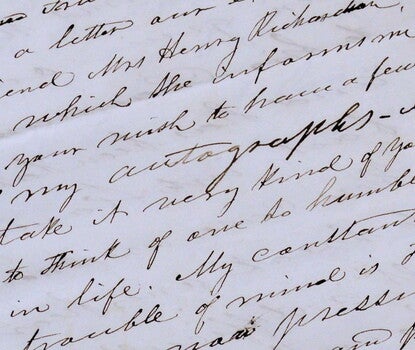 a letter our
Mrs Henry Richardson,
which she informs me
your wish to have a few
my autographs -
take it very kind of you
to think of one so humble
in life. My constant
trouble of mind is
pressu